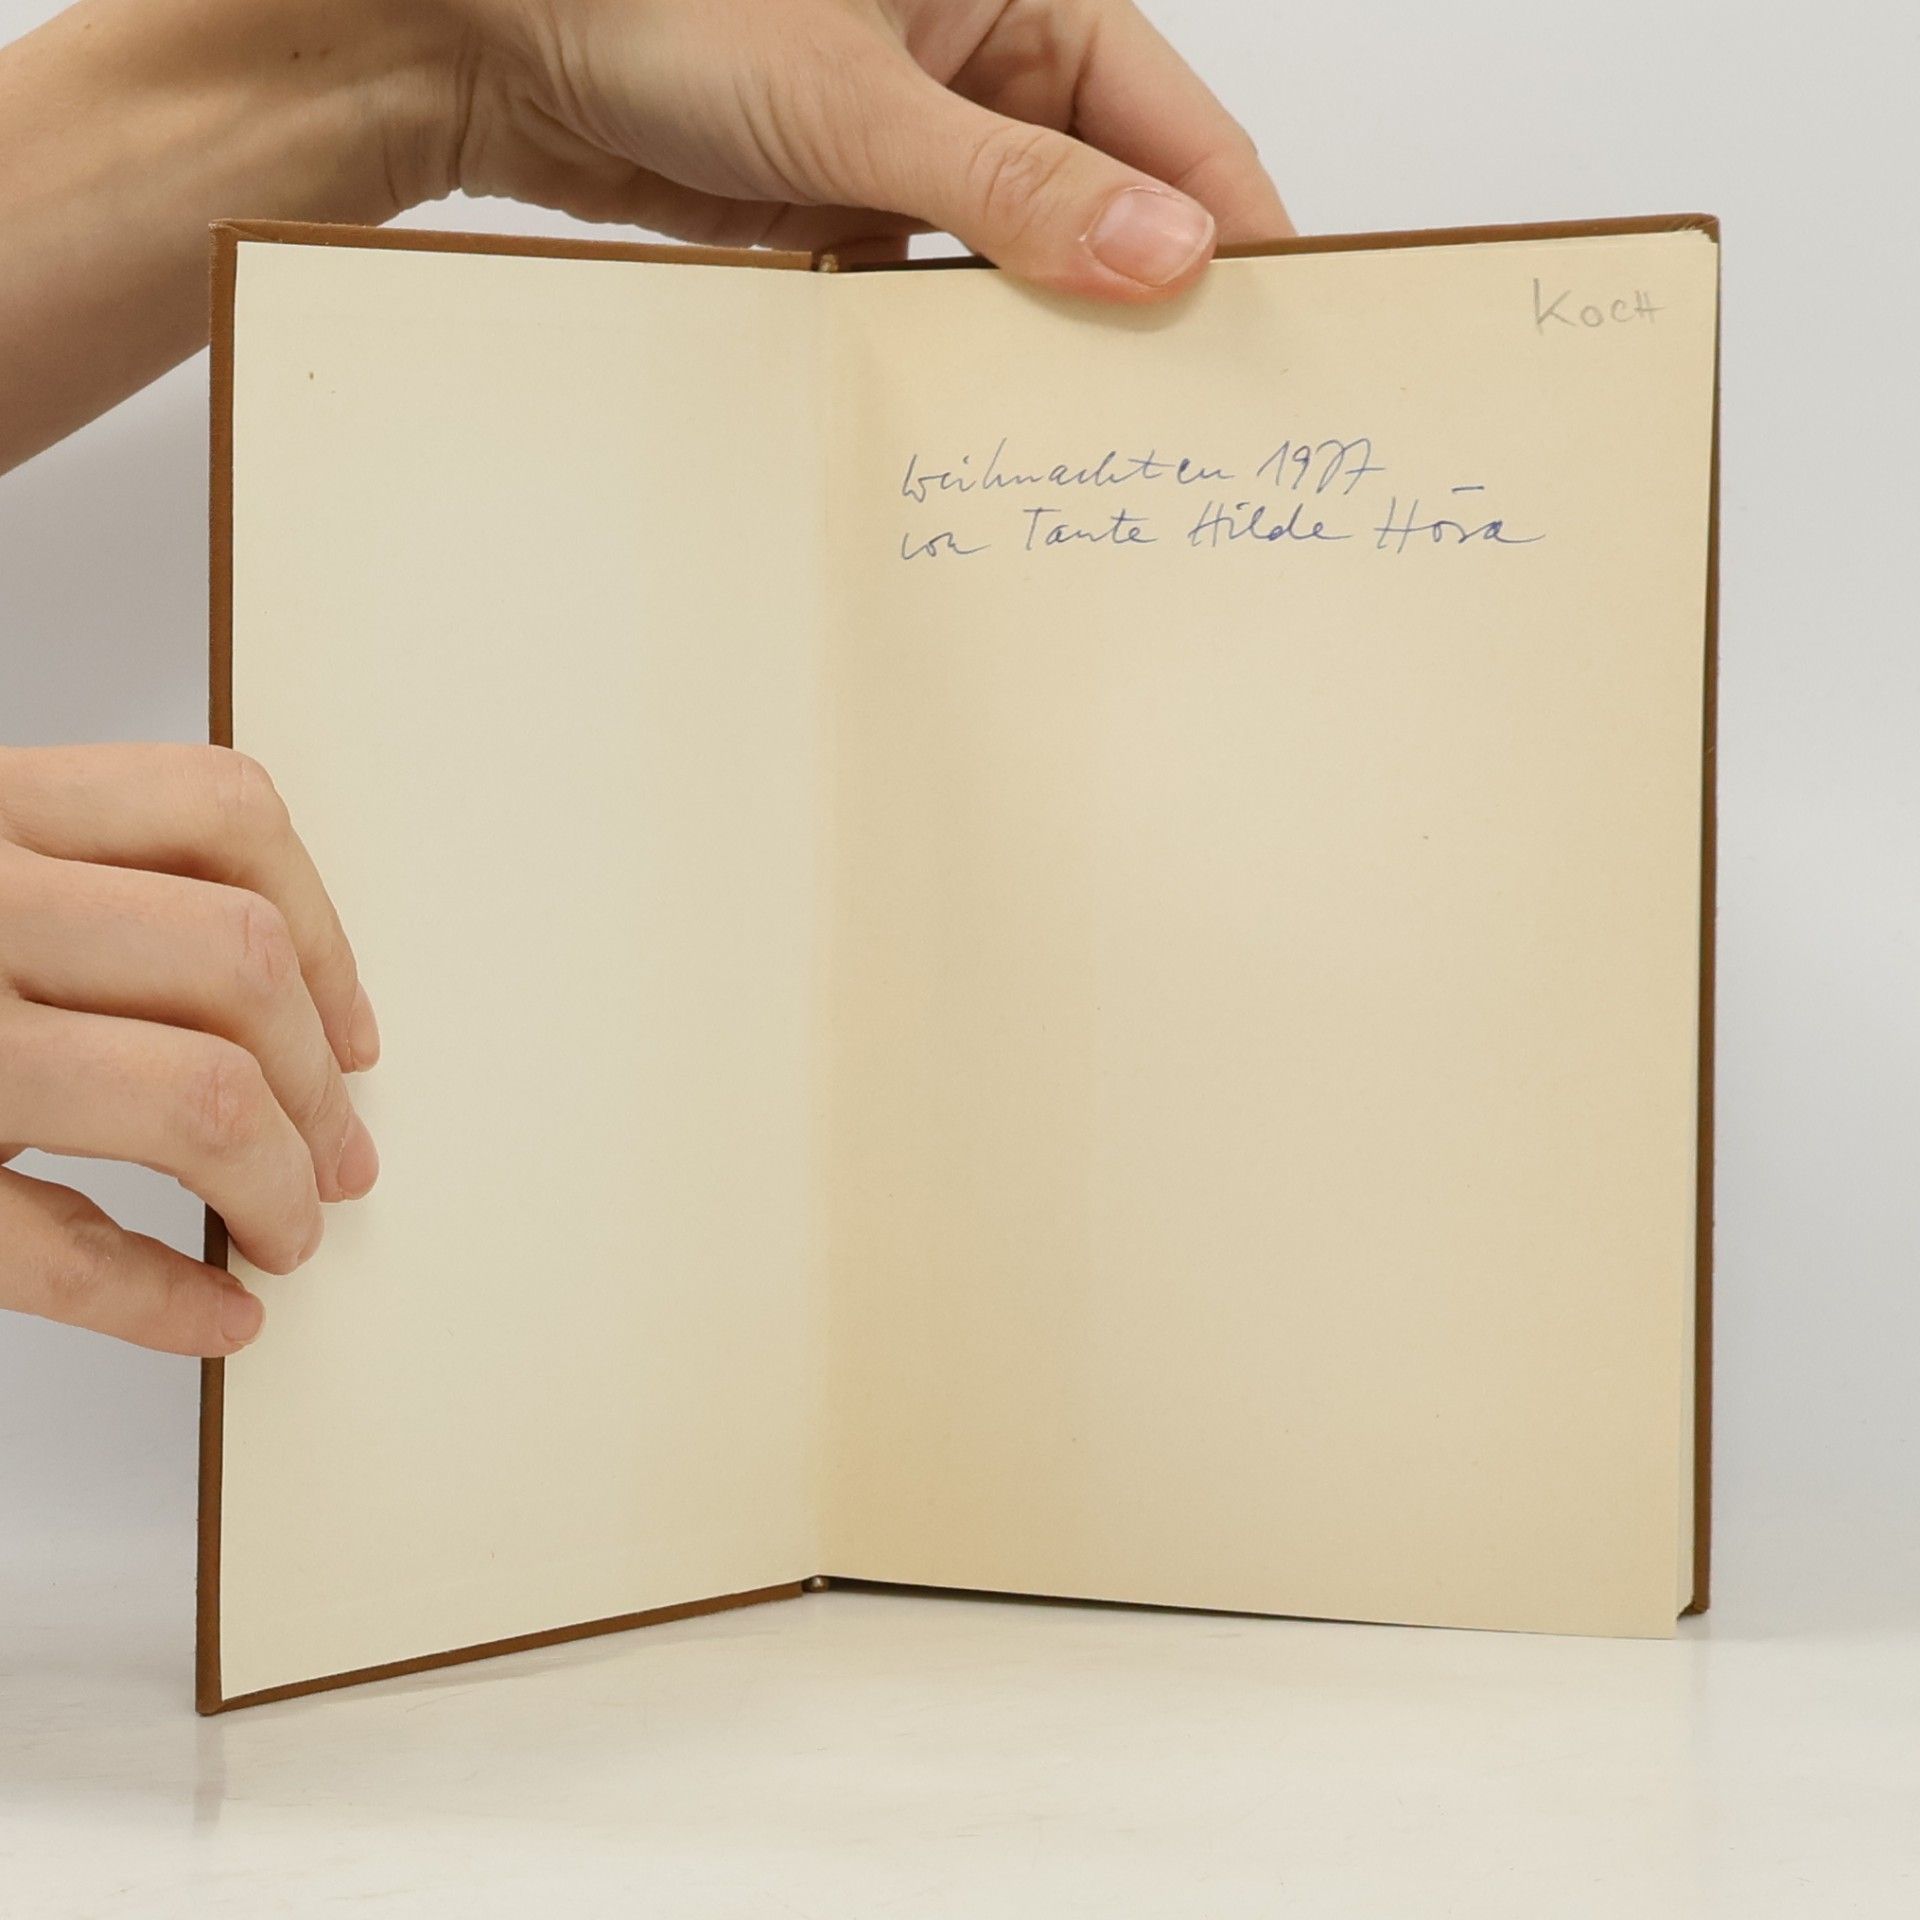 Koch
Weihnachten 1977
von Tante Hilde